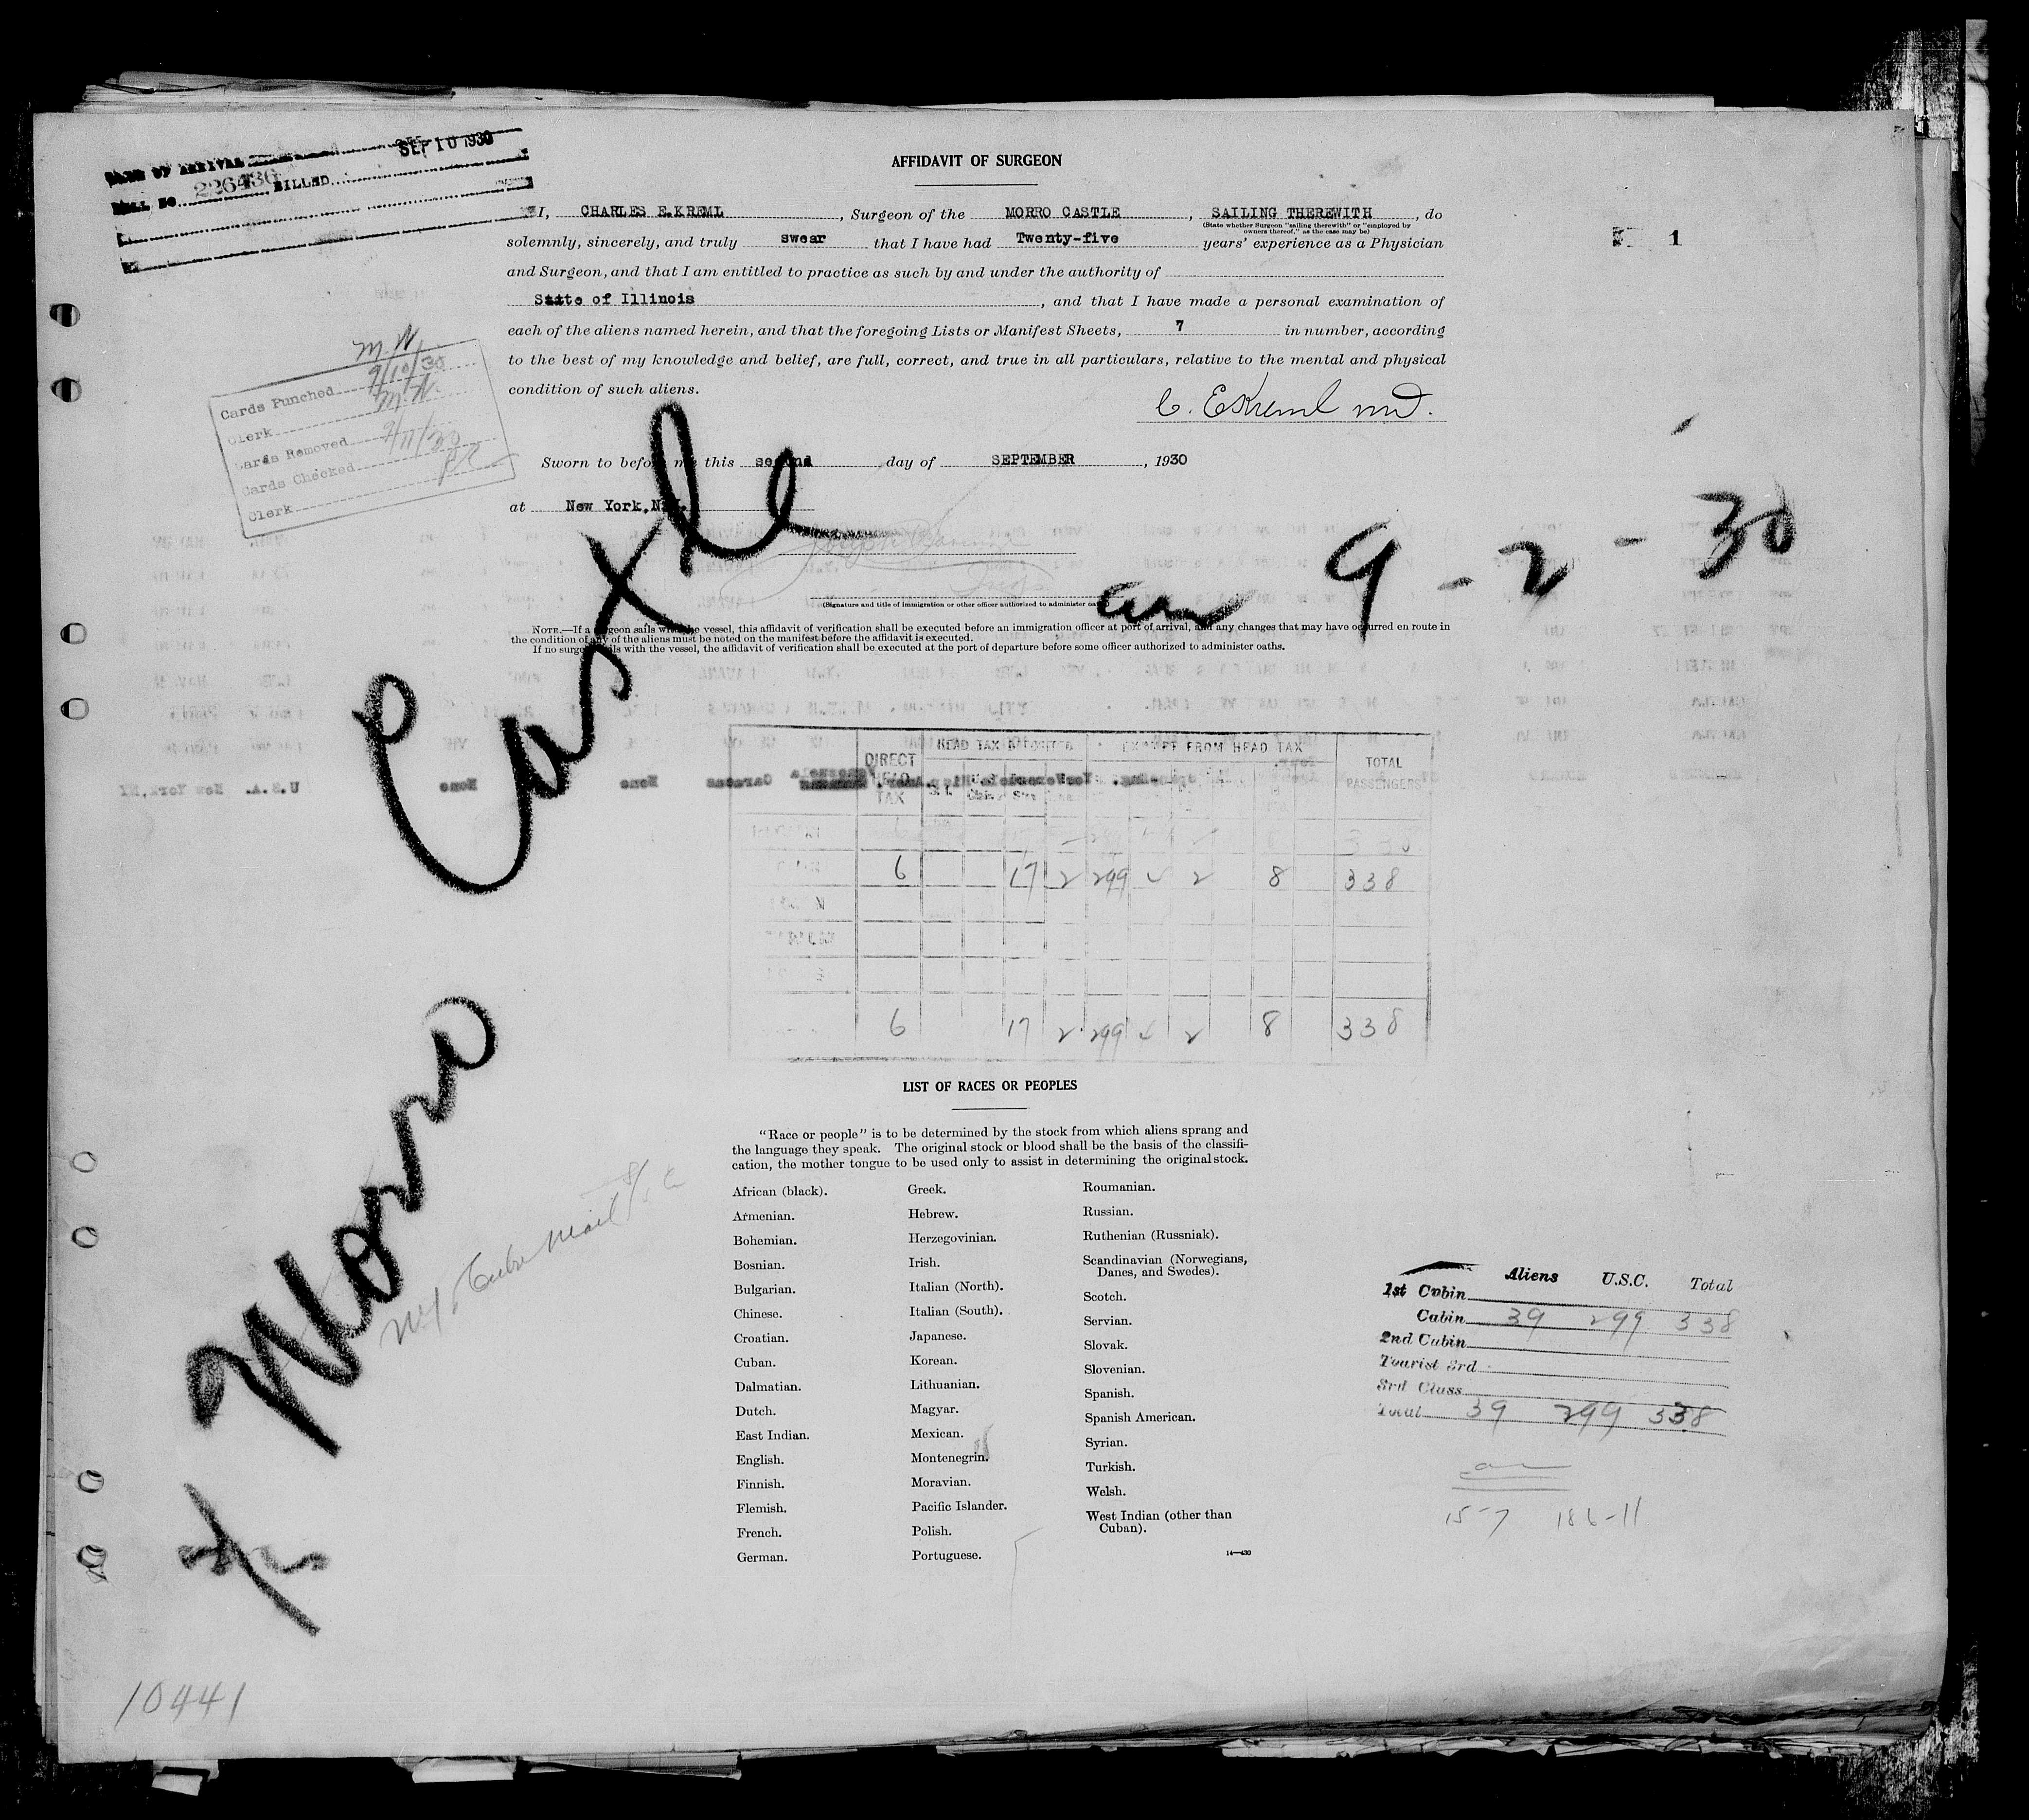 DATE OF ARRIVAL SEP 10 1930
BILL NO. 226436 BILLED
AFFIDAVIT OF SURGEON
I, CHARLES E.KREML, Surgeon of the MORRO CASTLE, SAILING THEREWITH, do
(State whether Surgeon "sailing therewith" or "employed by
owners thereof," as the case may be)
solemnly, sincerely, and truly swear that I have had Twenty-five years' experience as a Physician
1
and Surgeon, and that I am entitled to practice as such by and under the authority of
State of Illinois, and that I have made a personal examination of
each of the aliens named herein, and that the foregoing Lists or Manifest Sheets, 7 in number, according
to the best of my knowledge and belief, are full, correct, and true in all particulars, relative to the mental and physical
condition of such aliens.
C. E Kreml MD.
M.N.
Cards Punched 9/10/30
Clerk M.N.
Cards Removed 9/11/30
Cards Checked
Clerk
Sworn to before me this second day of SEPTEMBER, 1930
at New York, N.Y.
(Signature and title of immigration or other officer authorized to administer oaths)
arr 9-2-30
NOTE.—If a surgeon sails with the vessel, this affidavit of verification shall be executed before an immigration officer at port of arrival, and any changes that may have occurred en route in
the condition of any of the aliens must be noted on the manifest before the affidavit is executed.
If no surgeon sails with the vessel, the affidavit of verification shall be executed at the port of departure before some officer authorized to administer oaths.
Morro Castle
DIRECT HEAD TAX
HEAD TAX DEPOSITED
EXEMPT FROM HEAD TAX
TOTAL PASSENGERS
6 17 2 299 2 8 338
6 17 2 299 2 8 338
LIST OF RACES OR PEOPLES
"Race or people" is to be determined by the stock from which aliens sprang and
the language they speak. The original stock or blood shall be the basis of the classifi-
cation, the mother tongue to be used only to assist in determining the original stock.
African (black).
Armenian.
Bohemian.
Bosnian.
Bulgarian.
Chinese.
Croatian.
Cuban.
Dalmatian.
Dutch.
East Indian.
English.
Finnish.
Flemish.
French.
German.
Greek.
Hebrew.
Herzegovinian.
Irish.
Italian (North).
Italian (South).
Japanese.
Korean.
Lithuanian.
Magyar.
Mexican.
Montenegrin.
Moravian.
Pacific Islander.
Polish.
Portuguese.
Roumanian.
Russian.
Ruthenian (Russniak).
Scandinavian (Norwegians,
Danes, and Swedes).
Scotch.
Servian.
Slovak.
Slovenian.
Spanish.
Spanish American.
Syrian.
Turkish.
Welsh.
West Indian (other than
Cuban).
14—430
N.Y. Cuba Mail S/S Co
Aliens U.S.C. Total
1st Cabin
Cabin 39 299 338
2nd Cabin
Tourist 3rd
3rd Class
Total 39 299 338
15-7 186-11
10441